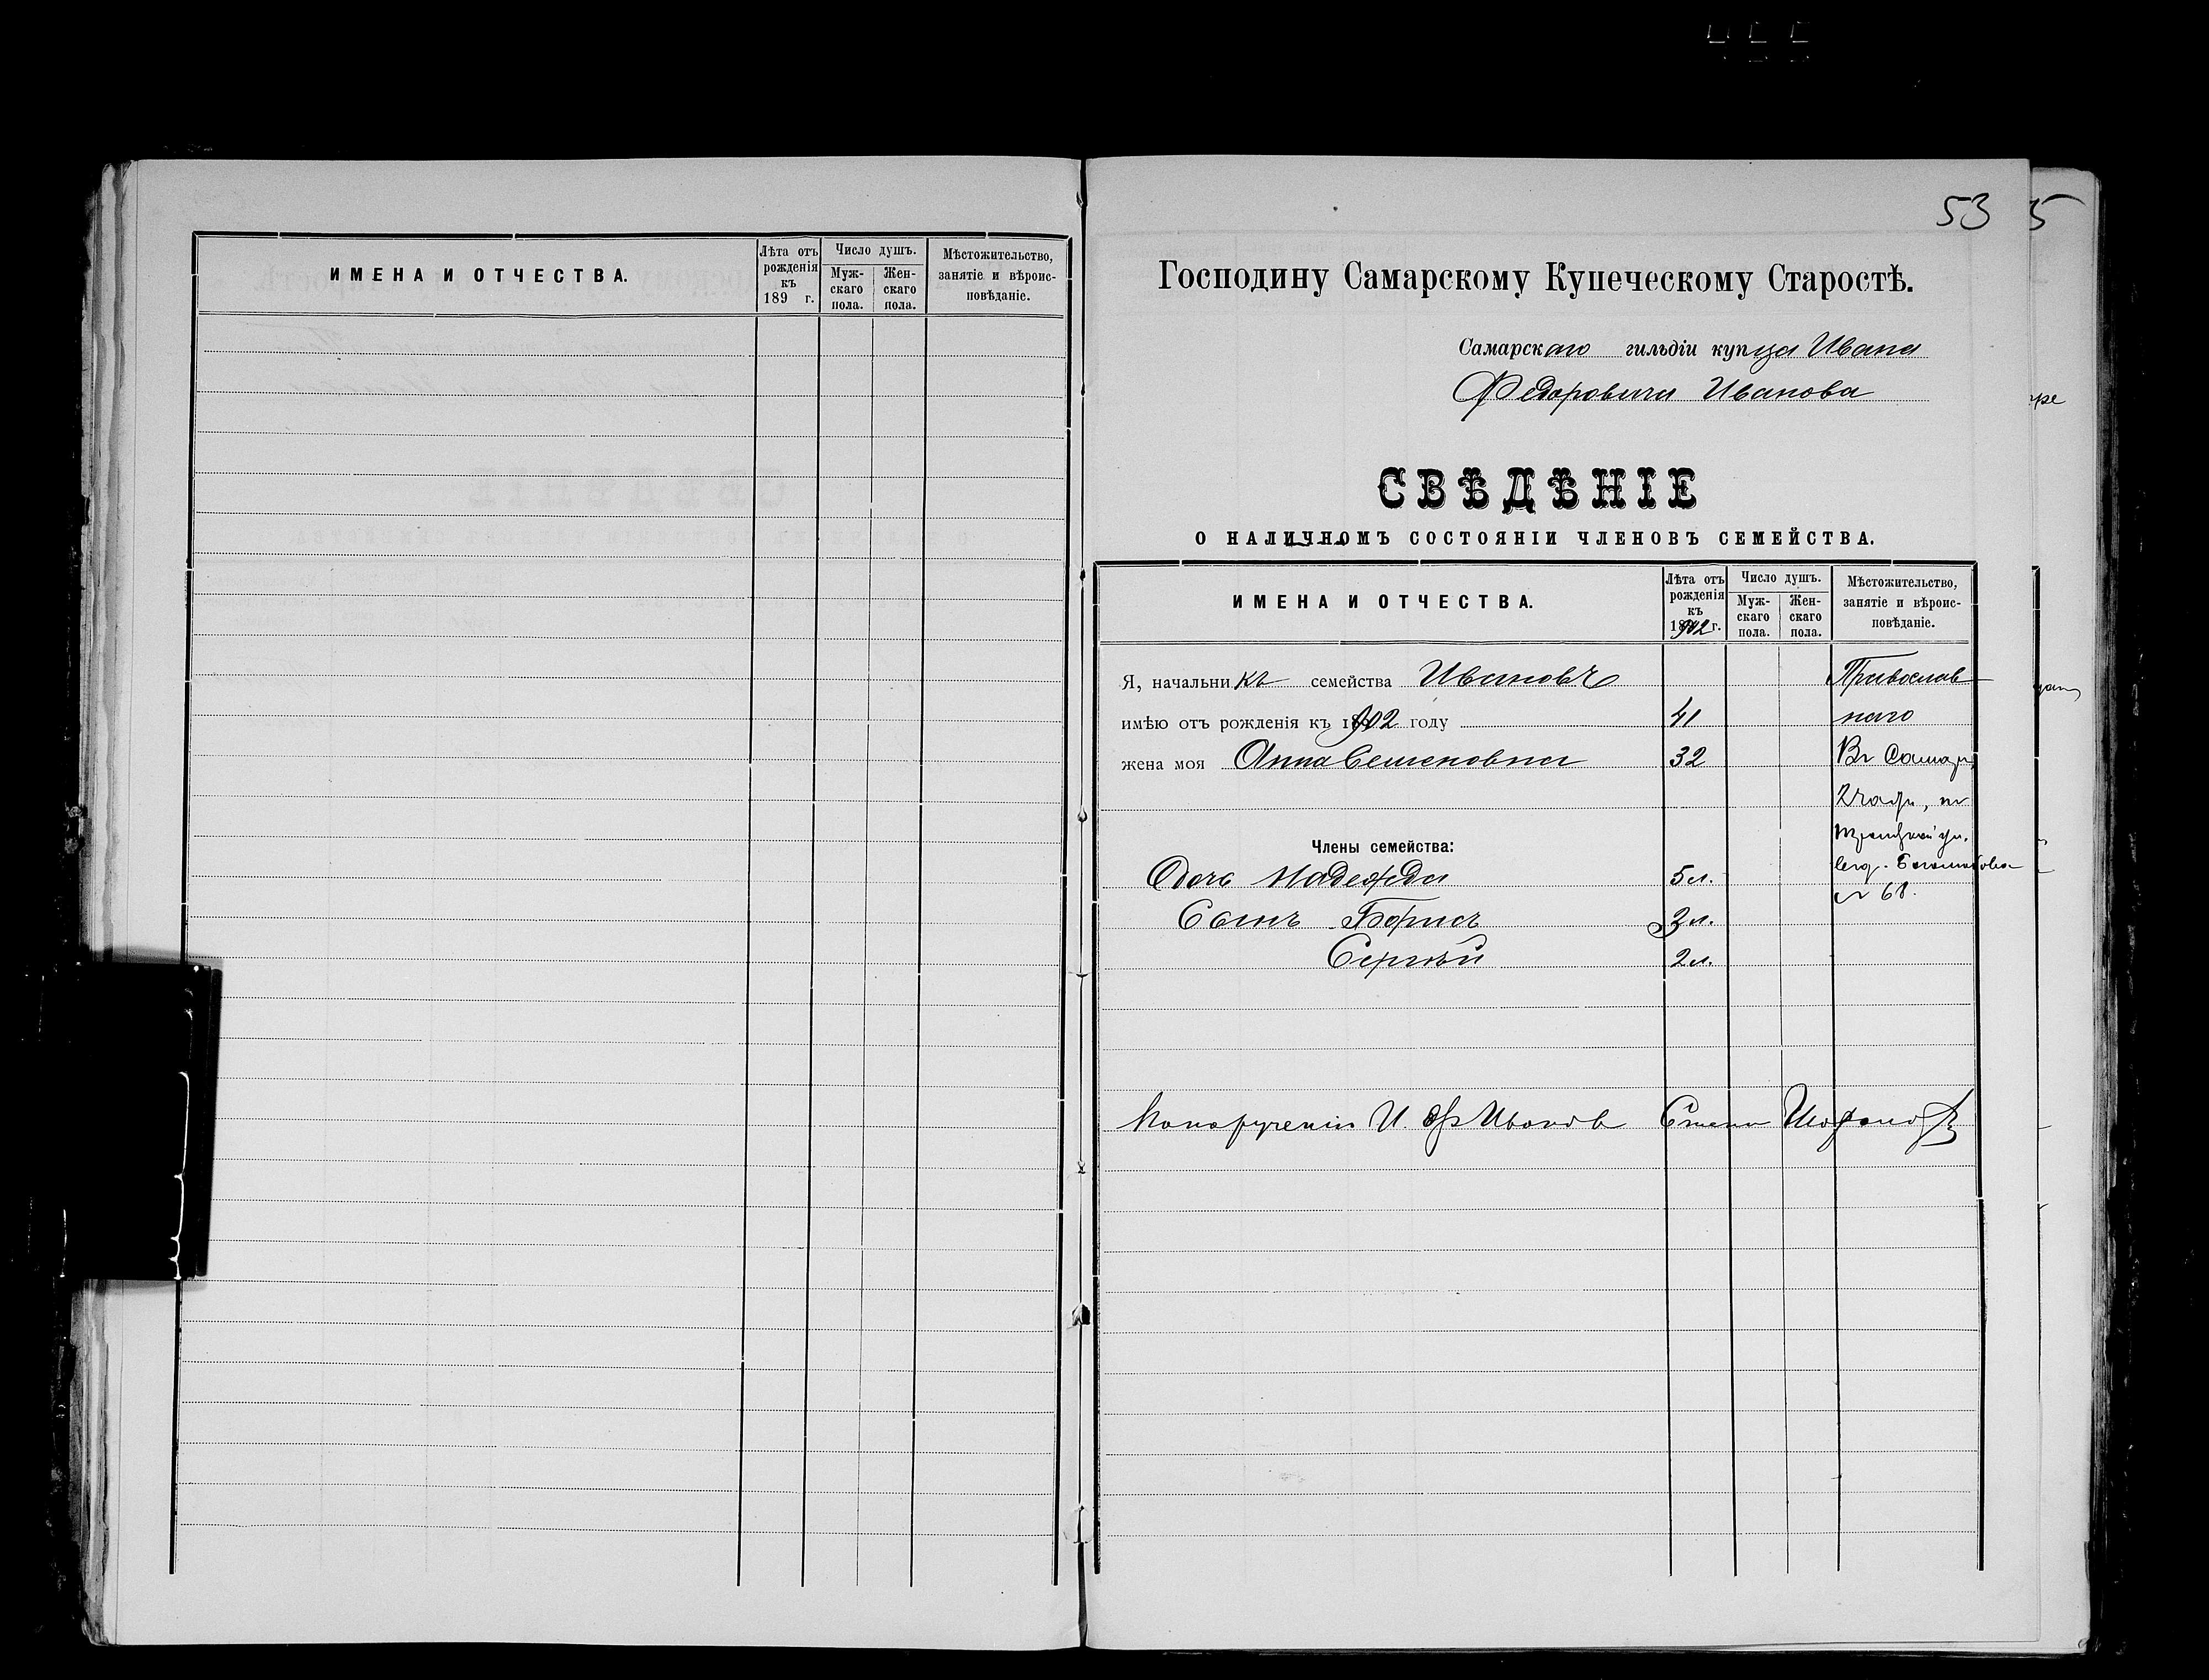 ИМЕНА И ОТЧЕСТВА.
Лѣта отъ рожденія къ 189 г.
Число душъ.
Муж-скаго пола.
Жен-скаго пола.
Мѣстожительство, занятіе и вѣроис-повѣданіе.
53
Господину Самарскому Купеческому Старостѣ.
Самарскаго гильдіи купца Ивана
Федоровича Иванова
СВѢДѢНІЕ
О НАЛИЧНОМЪ СОСТОЯНІИ ЧЛЕНОВЪ СЕМЕЙСТВА.
ИМЕНА И ОТЧЕСТВА.
Лѣта отъ рожденія къ 1902 г.
Число душъ.
Муж-скаго пола.
Жен-скаго пола.
Мѣстожительство, занятіе и вѣроис-повѣданіе.
Я, начальникъ семейства Ивановъ Православ
имѣю отъ рожденія къ 1902 году 41 наго
жена моя Анна Семеновна 32 Въ Самарѣ
2 части, по
Члены семейства: Троицкой ул.
Дочь Надежда 5 л.
№ 68.
Сынъ Борисъ 3 л.
Сергѣй 2 л.
И. Ф. Иванов